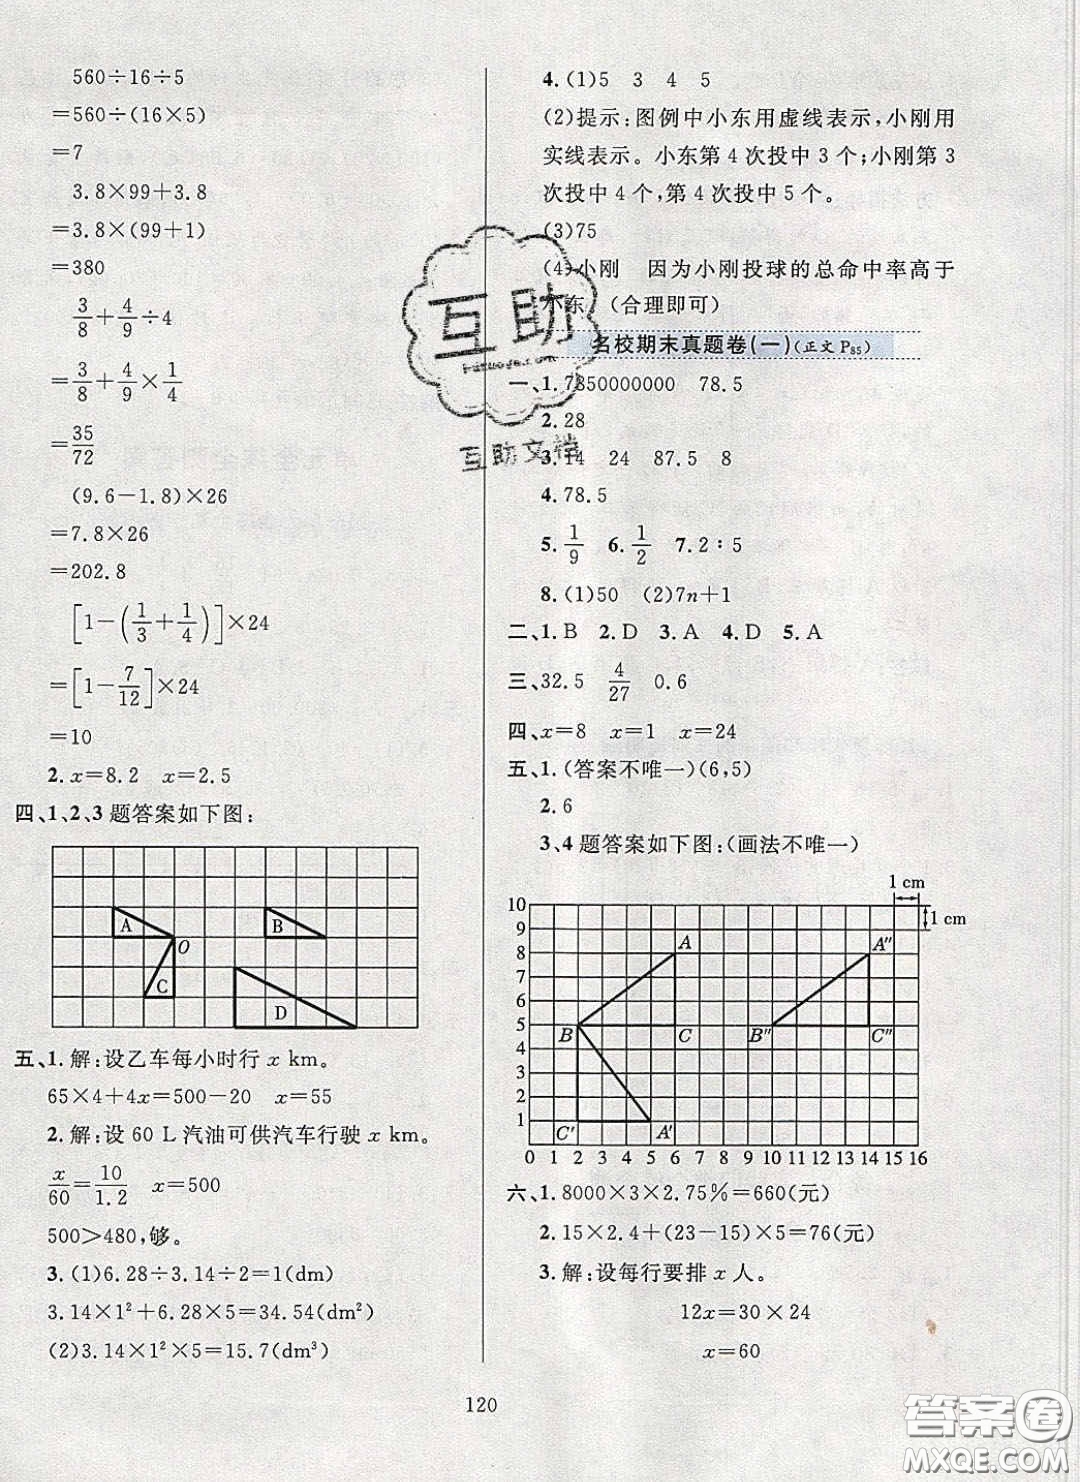 560÷16÷5
=560÷(16×5)
=7
3.8×99+3.8
=3.8×(99+1)
=380
3/8+4/9÷4
=3/8+4/9×1/4
=35/72
(9.6-1.8)×26
=7.8×26
=202.8
[1-(1/3+1/4)]×24
=[1-7/12]×24
=10
2.x=8.2 x=2.5
四、1、2、3题答案如下图:
A
B
O
C
D
五、1.解:设乙车每小时行 x km。
65×4+4x=500-20 x=55
2.解:设 60 L 汽油可供汽车行驶 x km。
x/60=10/1.2 x=500
500>480,够。
3.(1)6.28÷3.14÷2=1(dm)
3.14×1²+6.28×5=34.54(dm²)
(2)3.14×1²×5=15.7(dm³)
4.(1)5 3 4 5
(2)提示:图例中小东用虚线表示,小刚用
实线表示。小东第 4 次投中 3 个;小刚第 3
次投中 4 个,第 4 次投中 5 个。
(3)75
(4)小刚 因为小刚投球的总命中率高于
小东 (合理即可)
名校期末真题卷(一)(正文 P85)
一、1.7850000000 78.5
2.28
3.14 24 87.5 8
4.78.5
5.1/9 6.1/2 7.2:5
8.(1)50 (2)7n+1
二、1.B 2.D 3.A 4.D 5.A
三、32.5 4/27 0.6
四、x=8 x=1 x=24
五、1.(答案不唯一)(6,5)
2.6
3、4 题答案如下图:(画法不唯一)
1 cm
1 cm
10
9
8
7
6
5
4
3
2
1
A
A″
B
C
B″
C″
C′
A′
0 1 2 3 4 5 6 7 8 9 10 11 12 13 14 15 16
六、1.8000×3×2.75%=660(元)
2.15×2.4+(23-15)×5=76(元)
3.解:设每行要排 x 人。
12x=30×24
x=60
120
互助
互助文档
答案卷
MXQE.COM